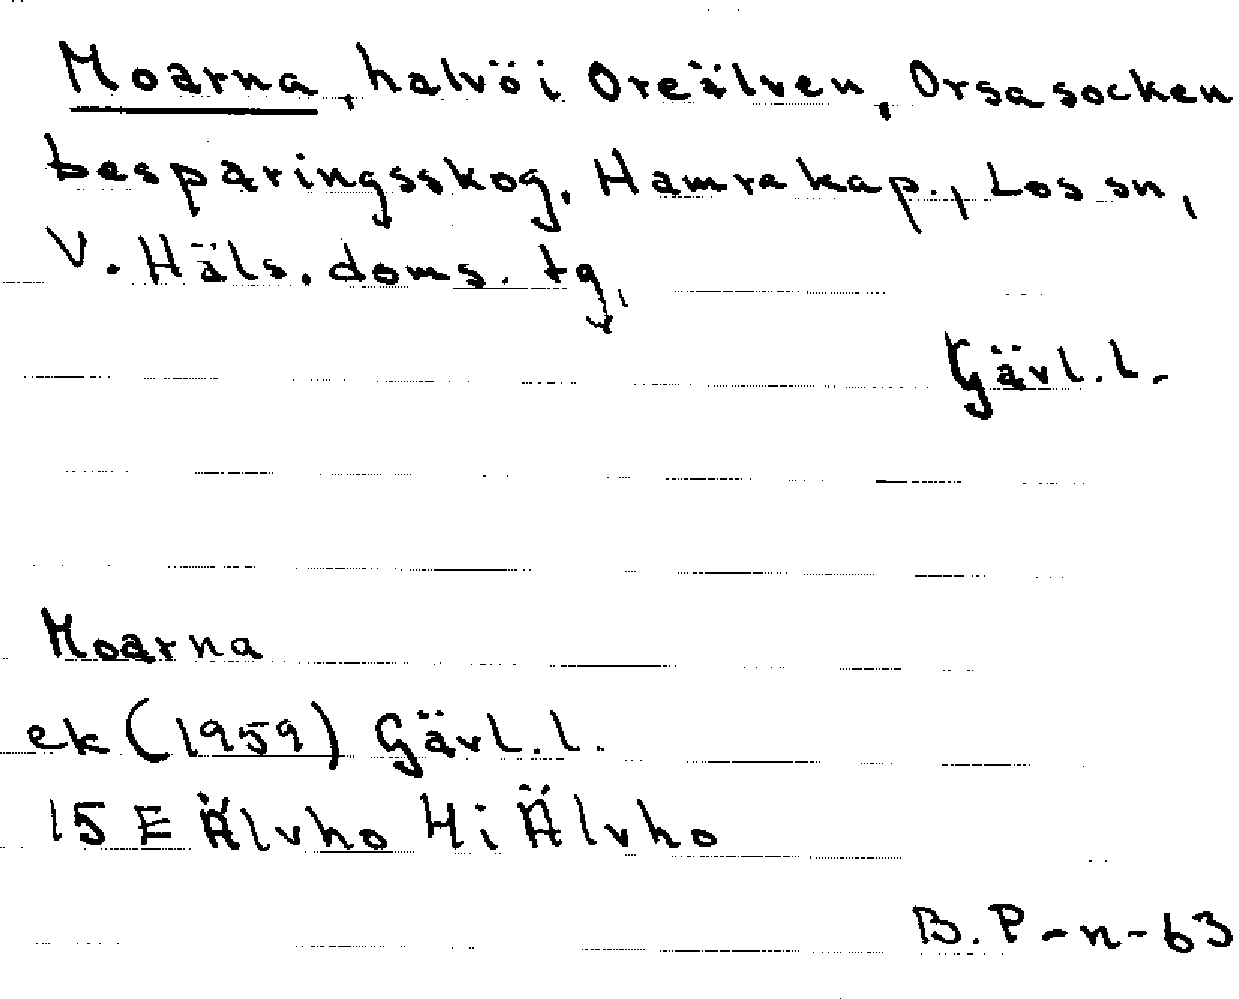 Moarna, halvö i Oreälven, Orsa socken
besparingsskog, Hamra kap., Los sn,
V. Häls. doms. tg,
Gävl. l.
Moarna
ek (1959) Gävl. l.
15 E Älvho 4i Älvho
B. P-n-63